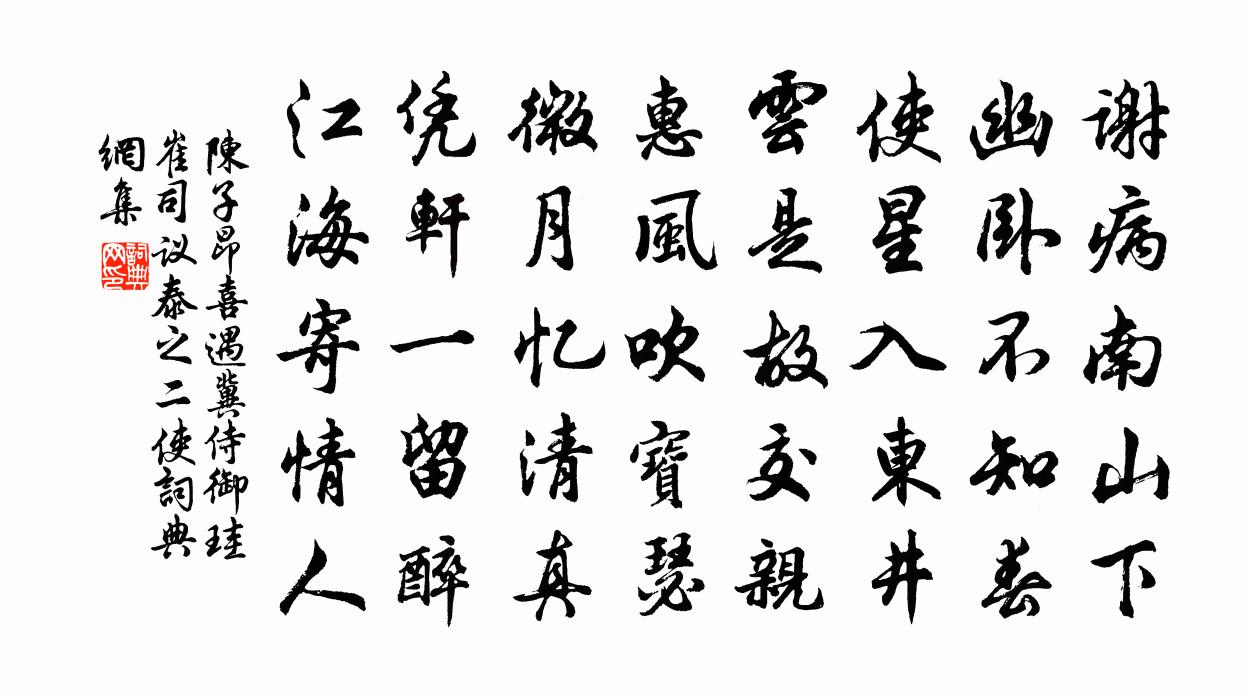 谢病南山下
幽卧不知春
使星入東井
雲是故交親
惠風吹寶瑟
微月忆清真
凭軒一留醉
江海寄情人
陳子昂喜遇冀侍御珪
崔司议泰之二使詞典
網集
詞典网印